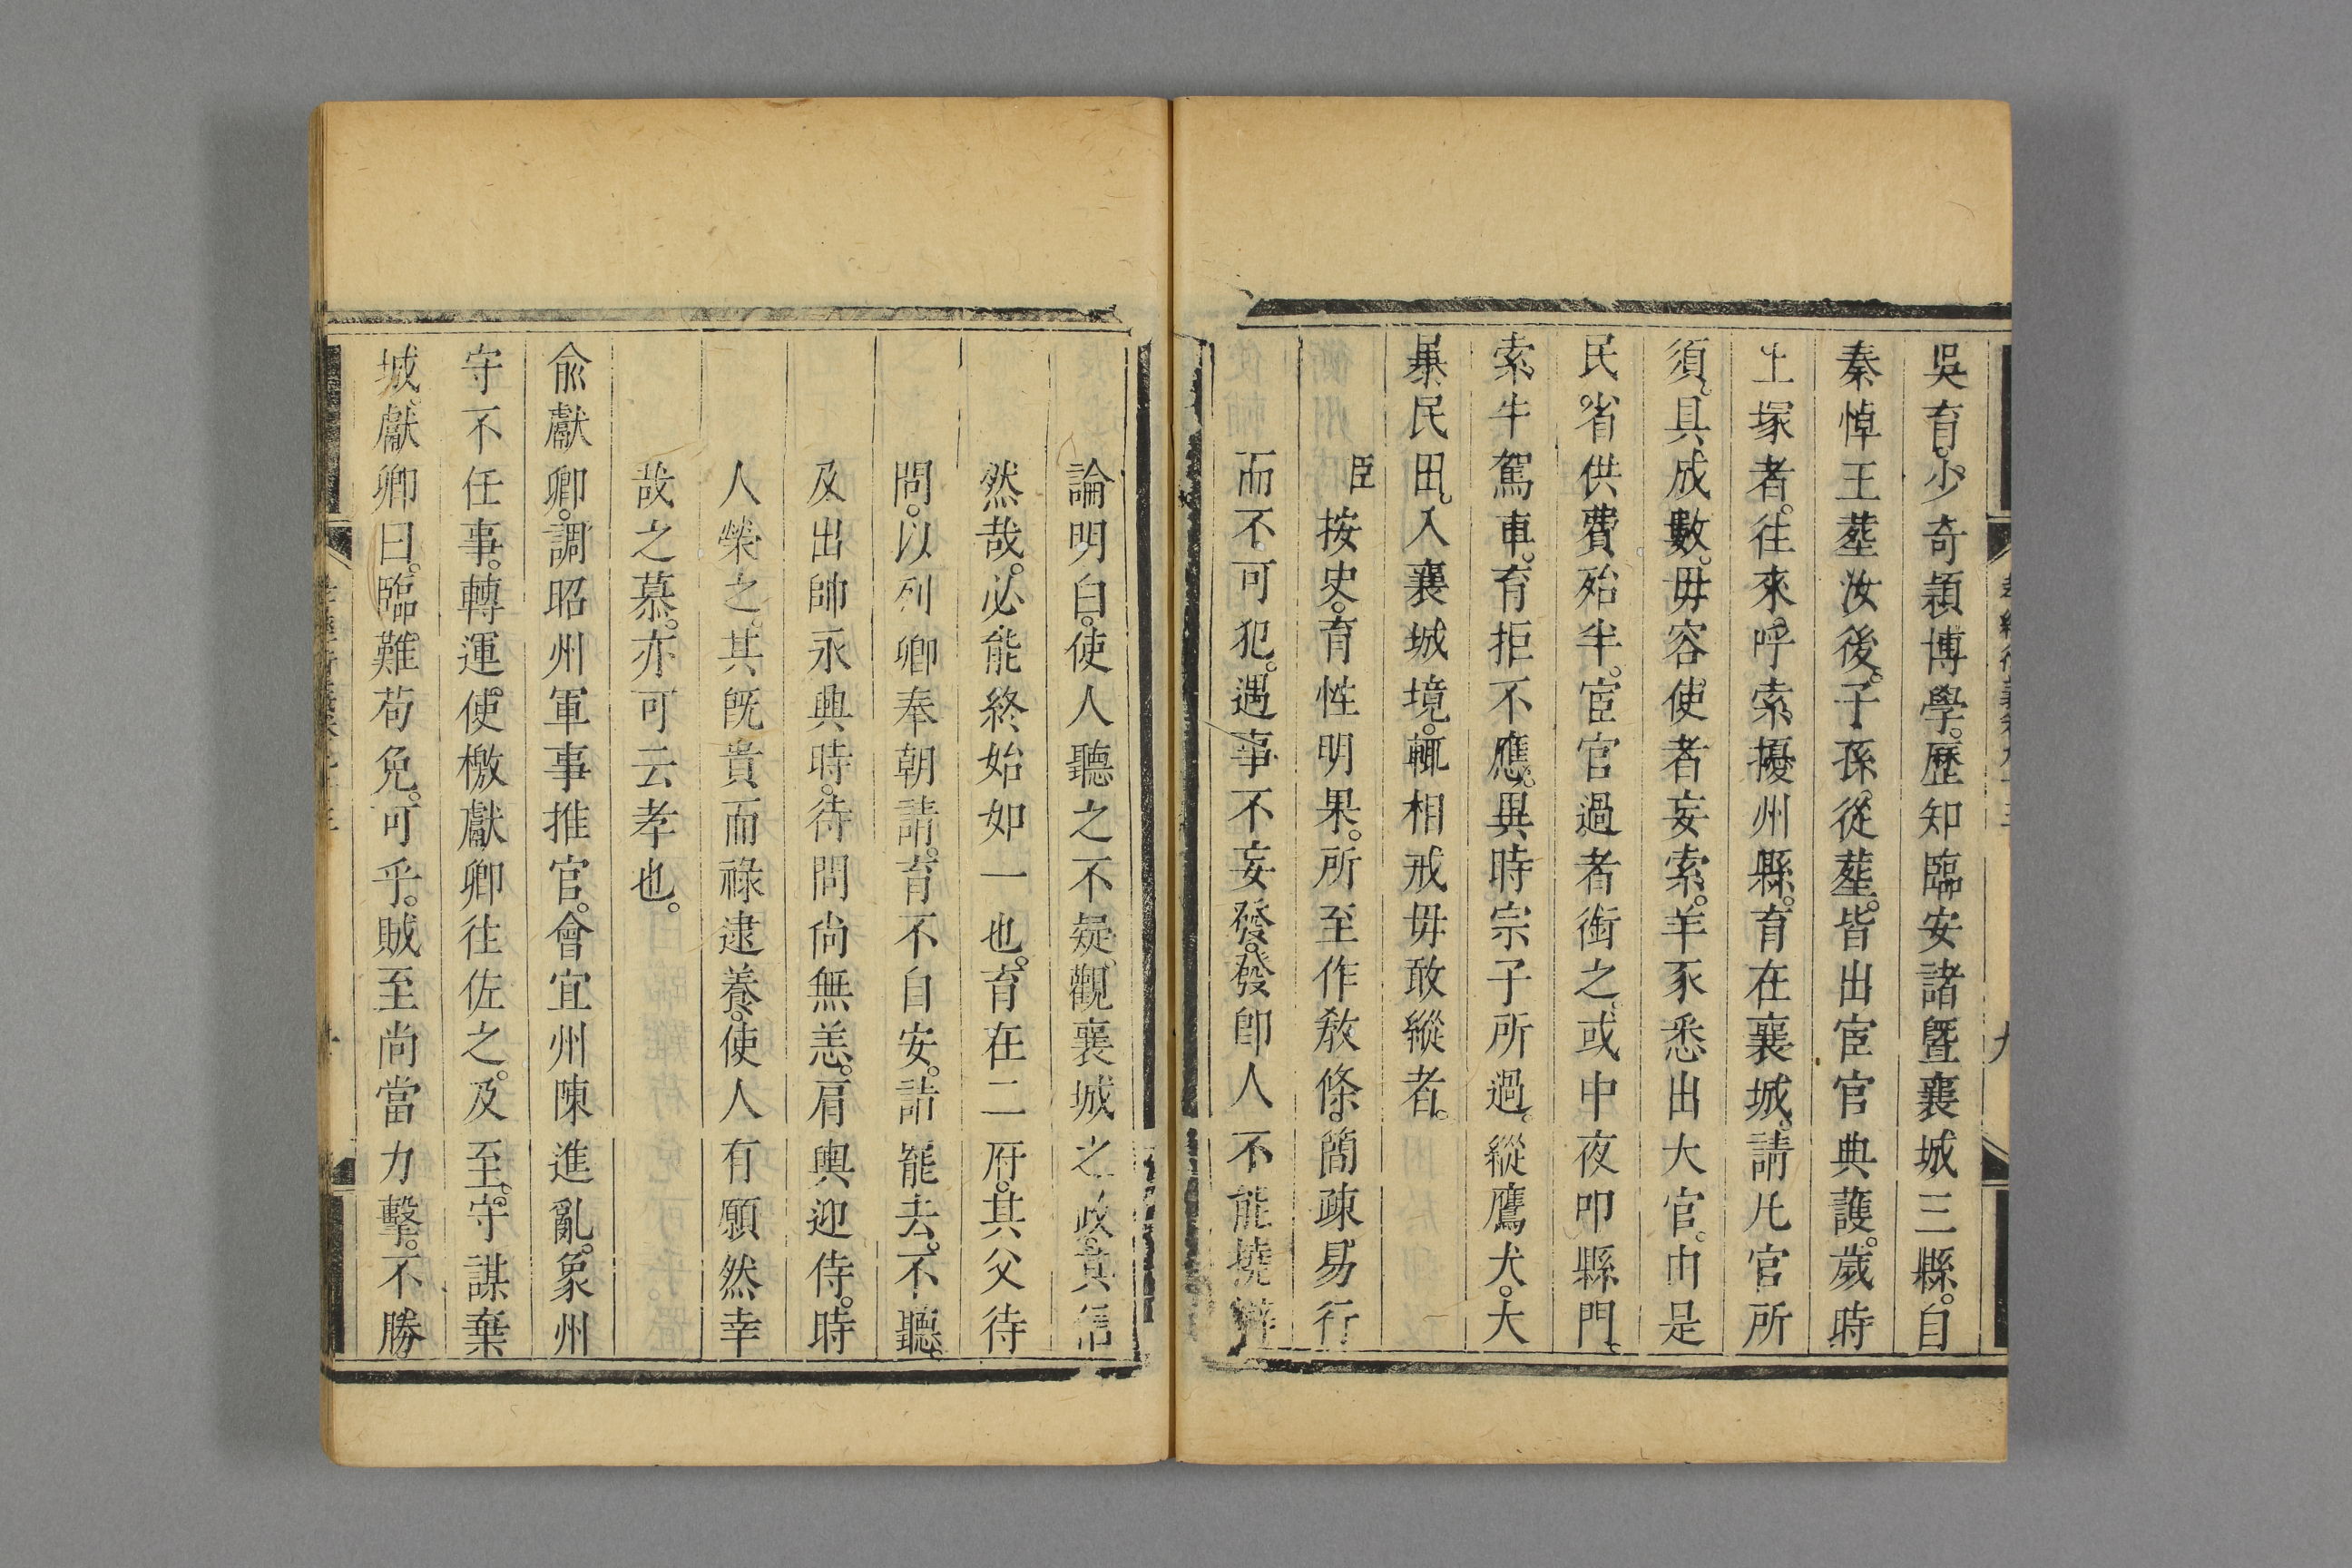 吳育。少奇穎博學。歷知臨安諸曁襄城三縣。自
秦悼王塟汝後。子孫從塟。皆出宦官典護。歲時
上塚者。往來呼索擾州縣。育在襄城。請凡官所
須。具成數。毋容使者妄索。羊豕悉出大官。由是
民省供費殆半。宦官過者銜之。或中夜叩縣門。
索牛駕車。育拒不應。異時宗子所過。縱鷹犬。大
暴民田。入襄城境。輒相戒毋敢縱者。
臣按史。育性明果。所至作敎條。簡疎易行
而不可犯。遇事不妄發。發卽人不能撓。辯
論明白。使人聽之不疑。觀襄城之政。其信
然哉。必能終始如一也。育在二府。其父待
問。以列卿奉朝請。育不自安。請罷去。不聽。
及出帥永興時。待問尙無恙。肩輿迎侍。時
人榮之。其旣貴而祿逮養。使人有願然幸
哉之慕。亦可云孝也。
俞獻卿。調昭州軍事推官。會宜州陳進亂。象州
守不任事。轉運使檄獻卿往佐之。及至。守謀棄
城。獻卿曰。臨難苟免。可乎。賊至尚當力擊。不勝。